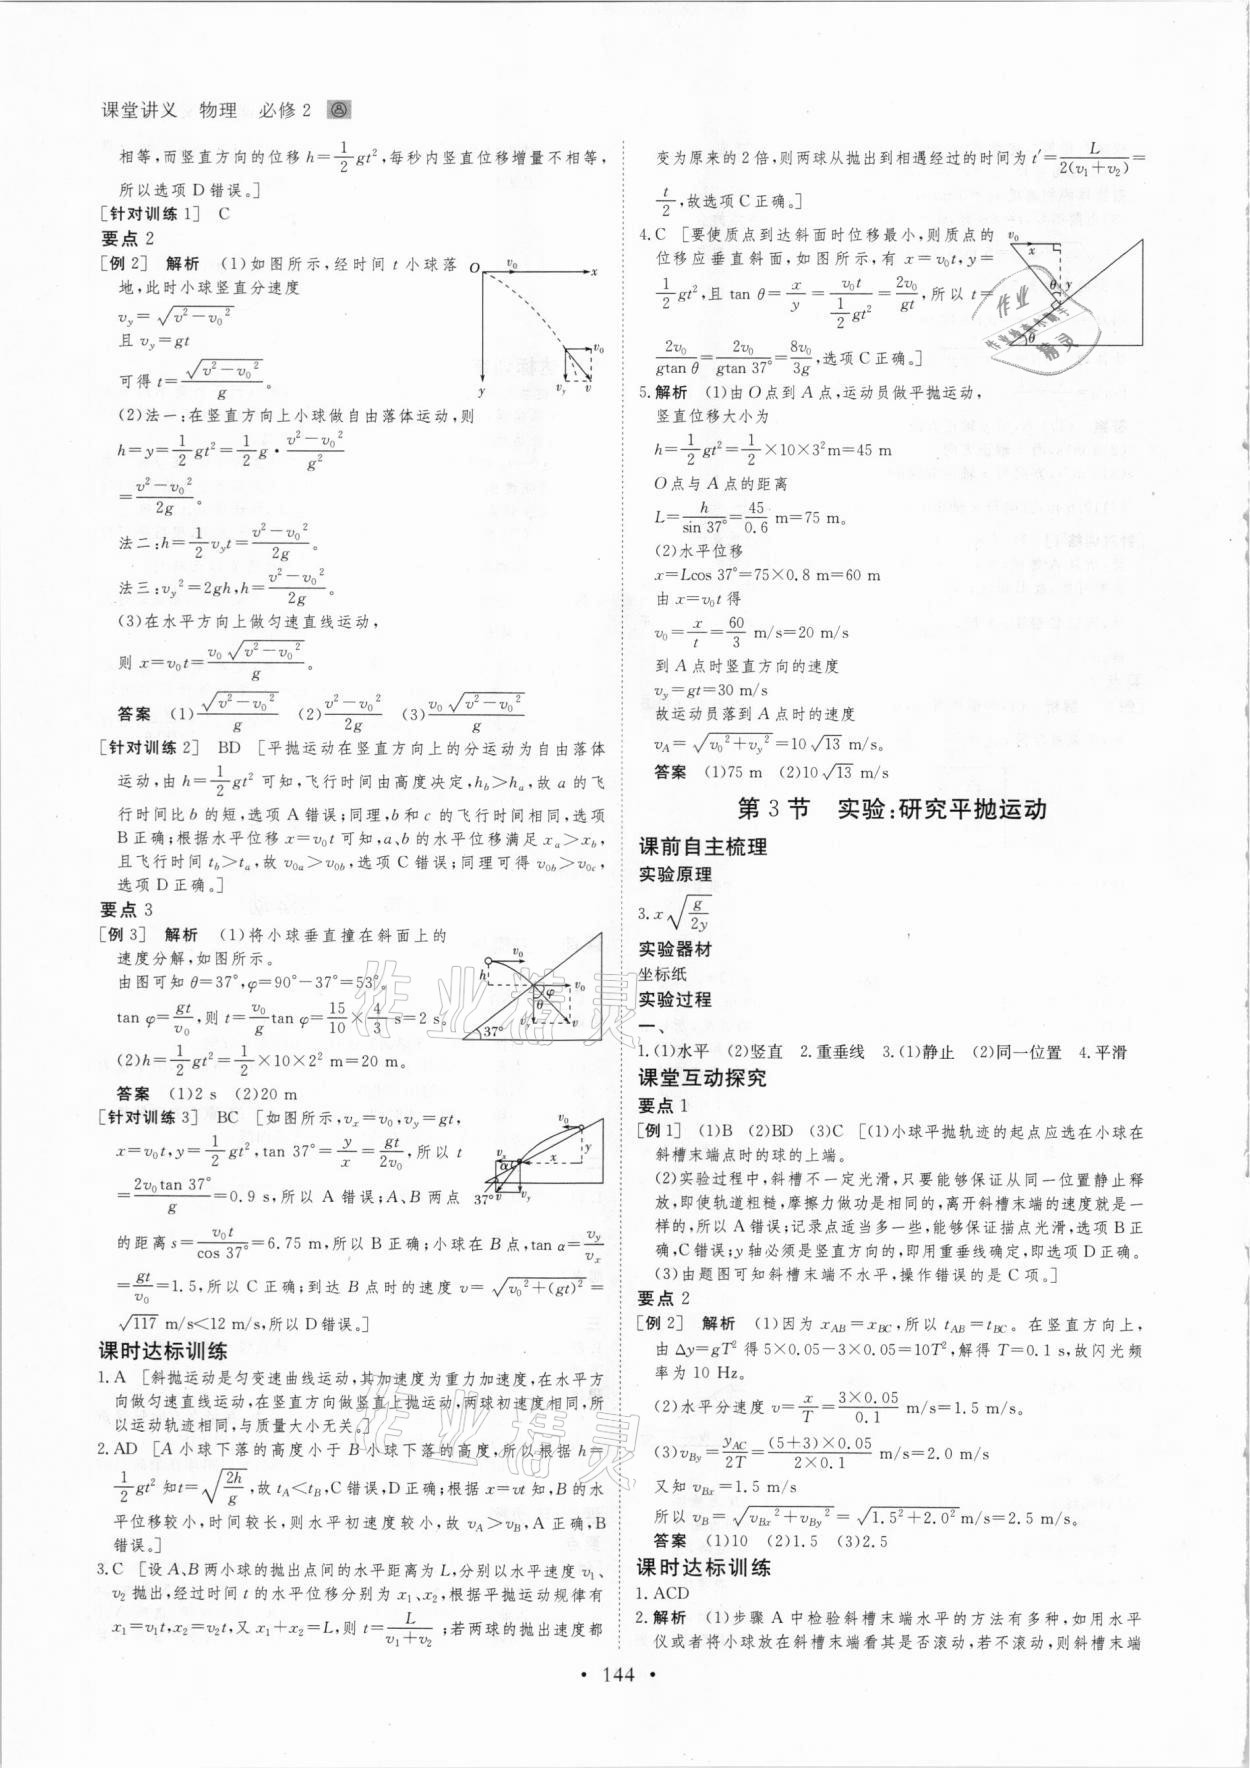 课堂讲义 物理 必修2
相等,而竖直方向的位移h=1/2gt²,每秒内竖直位移增量不相等,
所以选项D错误。]
[针对训练1] C
要点2
[例2] 解析 (1)如图所示,经时间t小球落
地,此时小球竖直分速度
v_y=√(v²-v₀²)
且v_y=gt
可得t=√(v²-v₀²)/g。
(2)法一:在竖直方向上小球做自由落体运动,则
h=y=1/2gt²=1/2g·(v²-v₀²)/g²
=(v²-v₀²)/2g。
法二:h=1/2v_yt=(v²-v₀²)/2g
法三:v_y²=2gh,h=(v²-v₀²)/2g
(3)在水平方向上做匀速直线运动,
则x=v₀t=v₀√(v²-v₀²)/g。
答案 (1)√(v²-v₀²)/g (2)(v²-v₀²)/2g (3)v₀√(v²-v₀²)/g
O v₀ x
v₀
y v_y v
[针对训练2] BD [平抛运动在竖直方向上的分运动为自由落体
运动,由h=1/2gt²可知,飞行时间由高度决定,h_b>h_a,故a的飞
行时间比b的短,选项A错误;同理,b和c的飞行时间相同,选项
B正确;根据水平位移x=v₀t可知,a、b的水平位移满足x_a>x_b,
且飞行时间t_b>t_a,故v₀a>v₀b,选项C错误;同理可得v₀b>v₀c,
选项D正确。]
要点3
[例3] 解析 (1)将小球垂直撞在斜面上的
速度分解,如图所示。
由图可知θ=37°,φ=90°-37°=53°。
tan φ=gt/v₀,则t=v₀/g tan φ=15/10×4/3 s=2 s。
(2)h=1/2gt²=1/2×10×2² m=20 m。
答案 (1)2 s (2)20 m
v₀
h
φ v₀
θ
37° v_y v
[针对训练3] BC [如图所示,v_x=v₀,v_y=gt,
x=v₀t,y=1/2gt²,tan 37°=y/x=gt/2v₀,所以t
=2v₀tan 37°/g=0.9 s,所以A错误;A、B两点
的距离s=v₀t/cos 37°=6.75 m,所以B正确;小球在B点,tan α=v_y/v_x
=gt/v₀=1.5,所以C正确;到达B点时的速度v=√(v₀²+(gt)²)=
√117 m/s<12 m/s,所以D错误。]
v₀
y
v_x α x
37° v v_y
课时达标训练
1.A [斜抛运动是匀变速曲线运动,其加速度为重力加速度,在水平方
向做匀速直线运动,在竖直方向做竖直上抛运动,两球初速度相同,所
以运动轨迹相同,与质量大小无关。]
2.AD [A小球下落的高度小于B小球下落的高度,所以根据h=
1/2gt²知t=√(2h/g),故t_A<t_B,C错误,D正确;根据x=vt知,B的水
平位移较小,时间较长,则水平初速度较小,故v_A>v_B,A正确,B
错误。]
3.C [设A、B两小球的抛出点间的水平距离为L,分别以水平速度v₁、
v₂抛出,经过时间t的水平位移分别为x₁、x₂,根据平抛运动规律有
x₁=v₁t,x₂=v₂t,又x₁+x₂=L,则t=L/(v₁+v₂);若两球的抛出速度都
变为原来的2倍,则两球从抛出到相遇经过的时间为t′=L/2(v₁+v₂)=
t/2,故选项C正确。]
4.C [要使质点到达斜面时位移最小,则质点的
位移应垂直斜面,如图所示,有x=v₀t,y=
1/2gt²,且tan θ=x/y=v₀t/(1/2gt²)=2v₀/gt,所以t=
2v₀/gtan θ=2v₀/gtan 37°=8v₀/3g,选项C正确。]
v₀
x
θ y
θ
5.解析 (1)由O点到A点,运动员做平抛运动,
竖直位移大小为
h=1/2gt²=1/2×10×3²m=45 m
O点与A点的距离
L=h/sin 37°=45/0.6 m=75 m。
(2)水平位移
x=Lcos 37°=75×0.8 m=60 m
由x=v₀t得
v₀=x/t=60/3 m/s=20 m/s
到A点时竖直方向的速度
v_y=gt=30 m/s
故运动员落到A点时的速度
v_A=√(v₀²+v_y²)=10√13 m/s。
答案 (1)75 m (2)10√13 m/s
第3节 实验:研究平抛运动
课前自主梳理
实验原理
3.x√(g/2y)
实验器材
坐标纸
实验过程
一、
1.(1)水平 (2)竖直 2.重垂线 3.(1)静止 (2)同一位置 4.平滑
课堂互动探究
要点1
[例1] (1)B (2)BD (3)C [(1)小球平抛轨迹的起点应选在小球在
斜槽末端点时的球的上端。
(2)实验过程中,斜槽不一定光滑,只要能够保证从同一位置静止释
放,即使轨道粗糙,摩擦力做功是相同的,离开斜槽末端的速度就是一
样的,所以A错误;记录点适当多一些,能够保证描点光滑,选项B正
确,C错误;y轴必须是竖直方向的,即用重垂线确定,即选项D正确。
(3)由题图可知斜槽末端不水平,操作错误的是C项。]
要点2
[例2] 解析 (1)因为x_AB=x_BC,所以t_AB=t_BC。在竖直方向上,
由Δy=gT²得5×0.05-3×0.05=10T²,解得T=0.1 s,故闪光频
率为10 Hz。
(2)水平分速度v=x/T=3×0.05/0.1 m/s=1.5 m/s。
(3)v_By=y_AC/2T=(5+3)×0.05/2×0.1 m/s=2.0 m/s
又知v_Bx=1.5 m/s
所以v_B=√(v_Bx²+v_By²)=√(1.5²+2.0²)m/s=2.5 m/s。
答案 (1)10 (2)1.5 (3)2.5
课时达标训练
1.ACD
2.解析 (1)步骤A中检验斜槽末端水平的方法有多种,如用水平
仪或者将小球放在斜槽末端看其是否滚动,若不滚动,则斜槽末端
• 144 •
作业精灵
作业精灵
作业
精灵